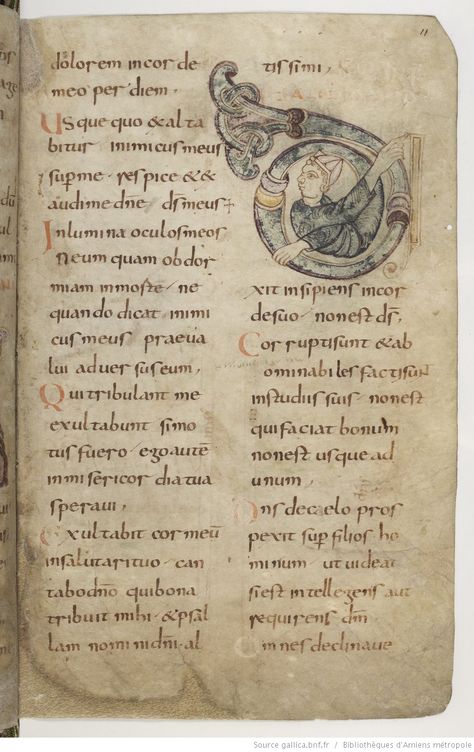 dolorem in cor de
meo per diem.
Usque quo exalta
bitur inimicus meus
sup me · respice & &
audi me dne ds meus
Inlumina oculos meos
Neum quam obdor
miam in morte · ne
quando dicat inimi
cus meus praeva
lui adversus eum,
Qui tribulant me
exultabunt si mo
tus fuero · ego autem
in misericordia tua
speravi,
Exultabit cor meū
in salutari tuo · can
tabo dno qui bona
tribuit mihi · & psal
lam nomini dni al
tissimi,
11
xit insipiens in cor
de suo · non est ds,
Corrupti sunt & ab
ominabiles facti sun
in studiis suis · non est
qui faciat bonum
non est usque ad
unum,
Dns de caelo pros
pexit sup filios ho
minum · ut videat
si est intellegens aut
requirens dm
Omnes declinave
Source gallica.bnf.fr / Bibliothèques d'Amiens métropole